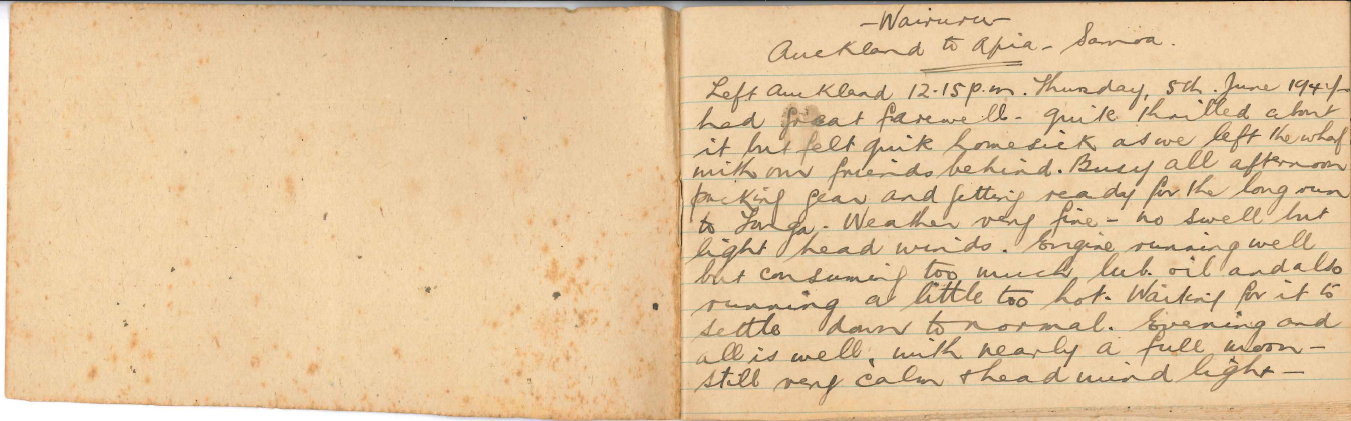 - Wairuru -
Auckland to Apia - Samoa.
Left Auckland 12.15 p.m. Thursday, 5th. June 1947
had great farewell - quite thrilled about
it but felt quite homesick as we left the wharf
with our friends behind. Busy all afternoon
packing gear and getting ready for the long run
to Tonga. Weather very fine - no swell but
light head winds. Engine running well
but consuming too much lub. oil and also
running a little too hot. Waiting for it to
settle down to normal. Evening and
all is well, with nearly a full moon -
still very calm & head wind light -